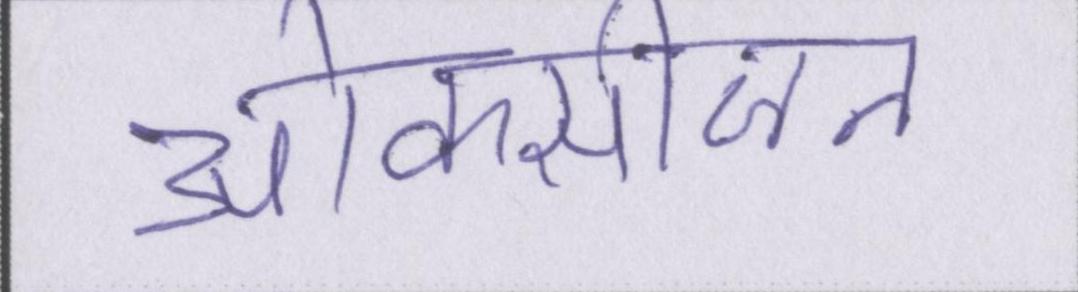 ओकसीजन